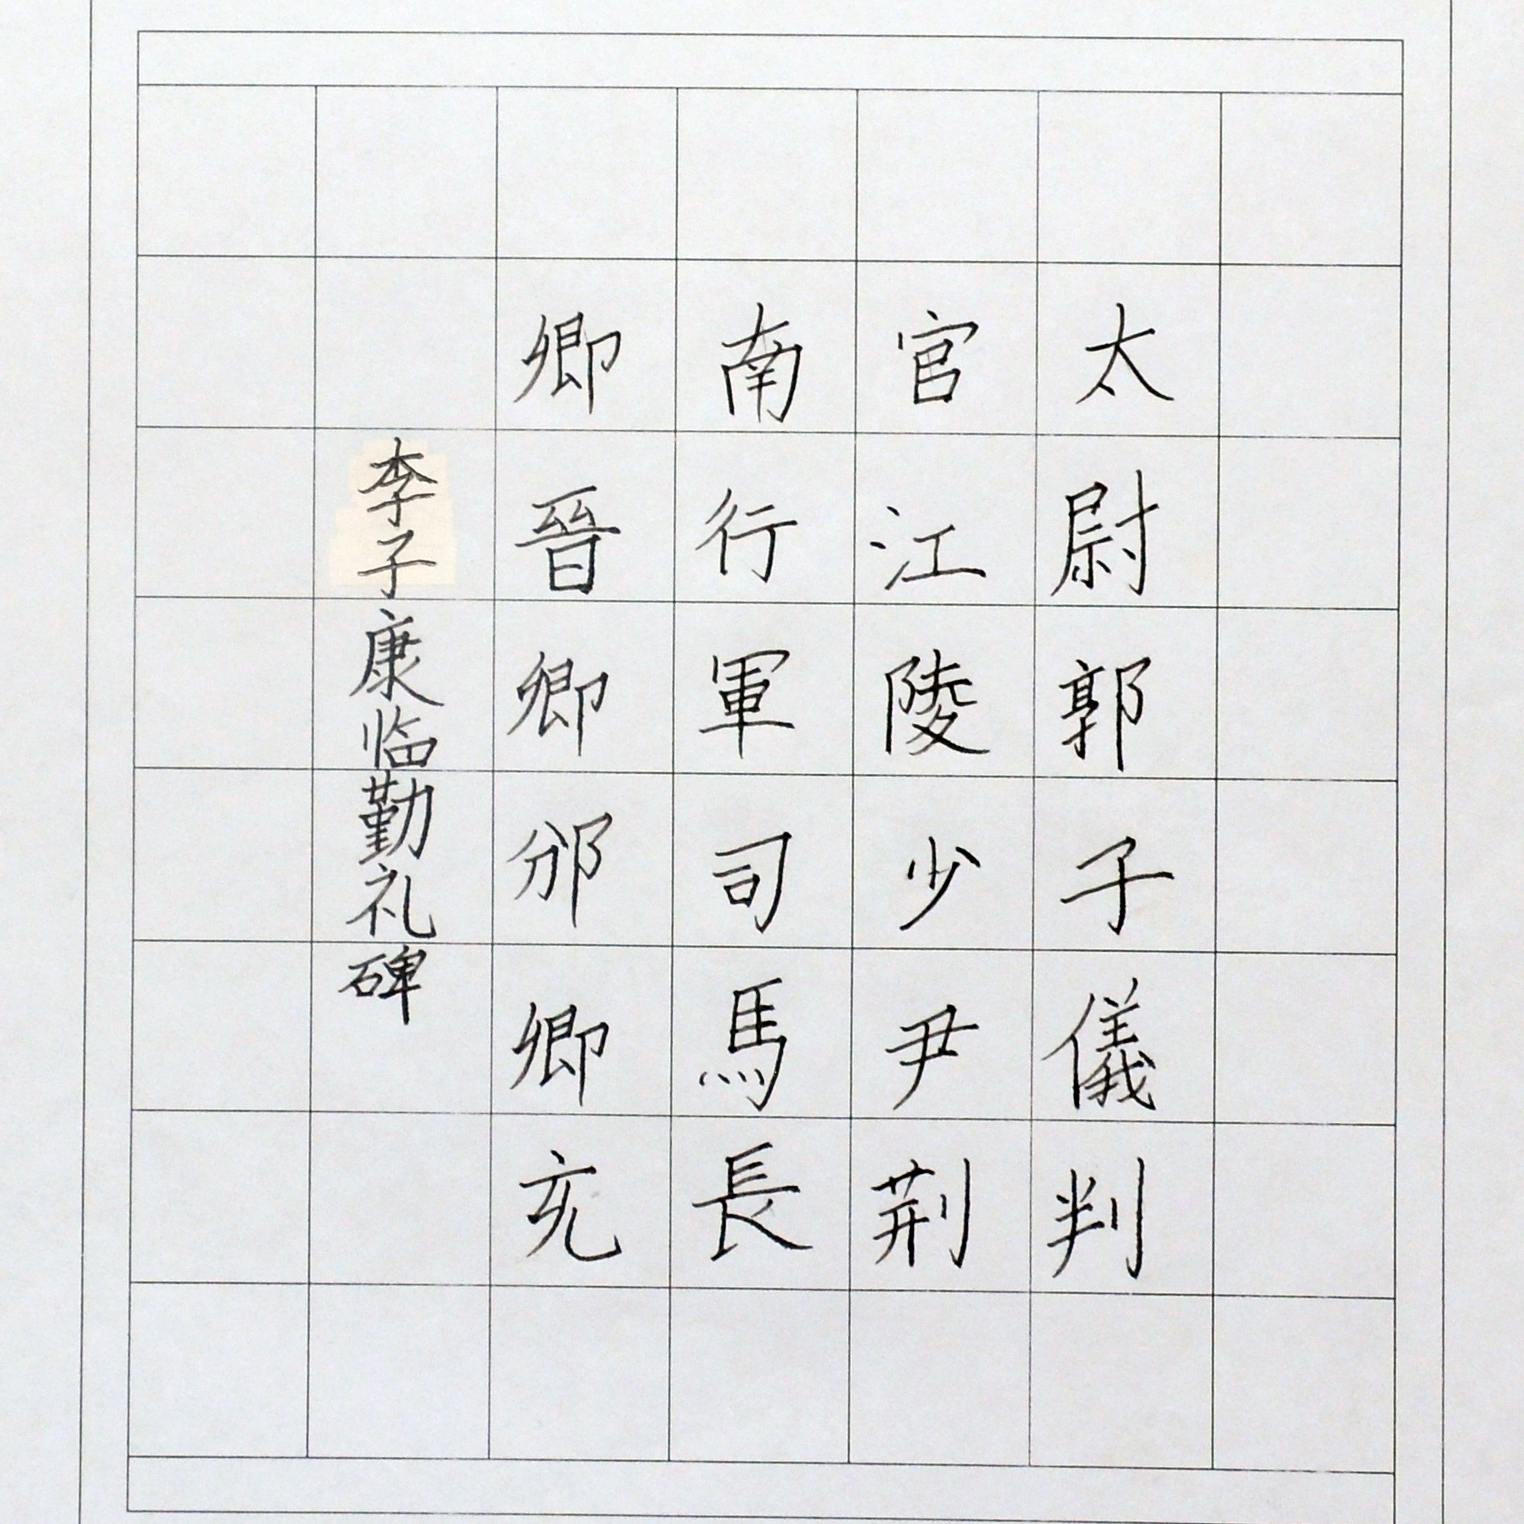 太尉郭子儀判
官江陵少尹荆
南行軍司馬長
卿晉卿邠卿充
李子康临勤礼碑